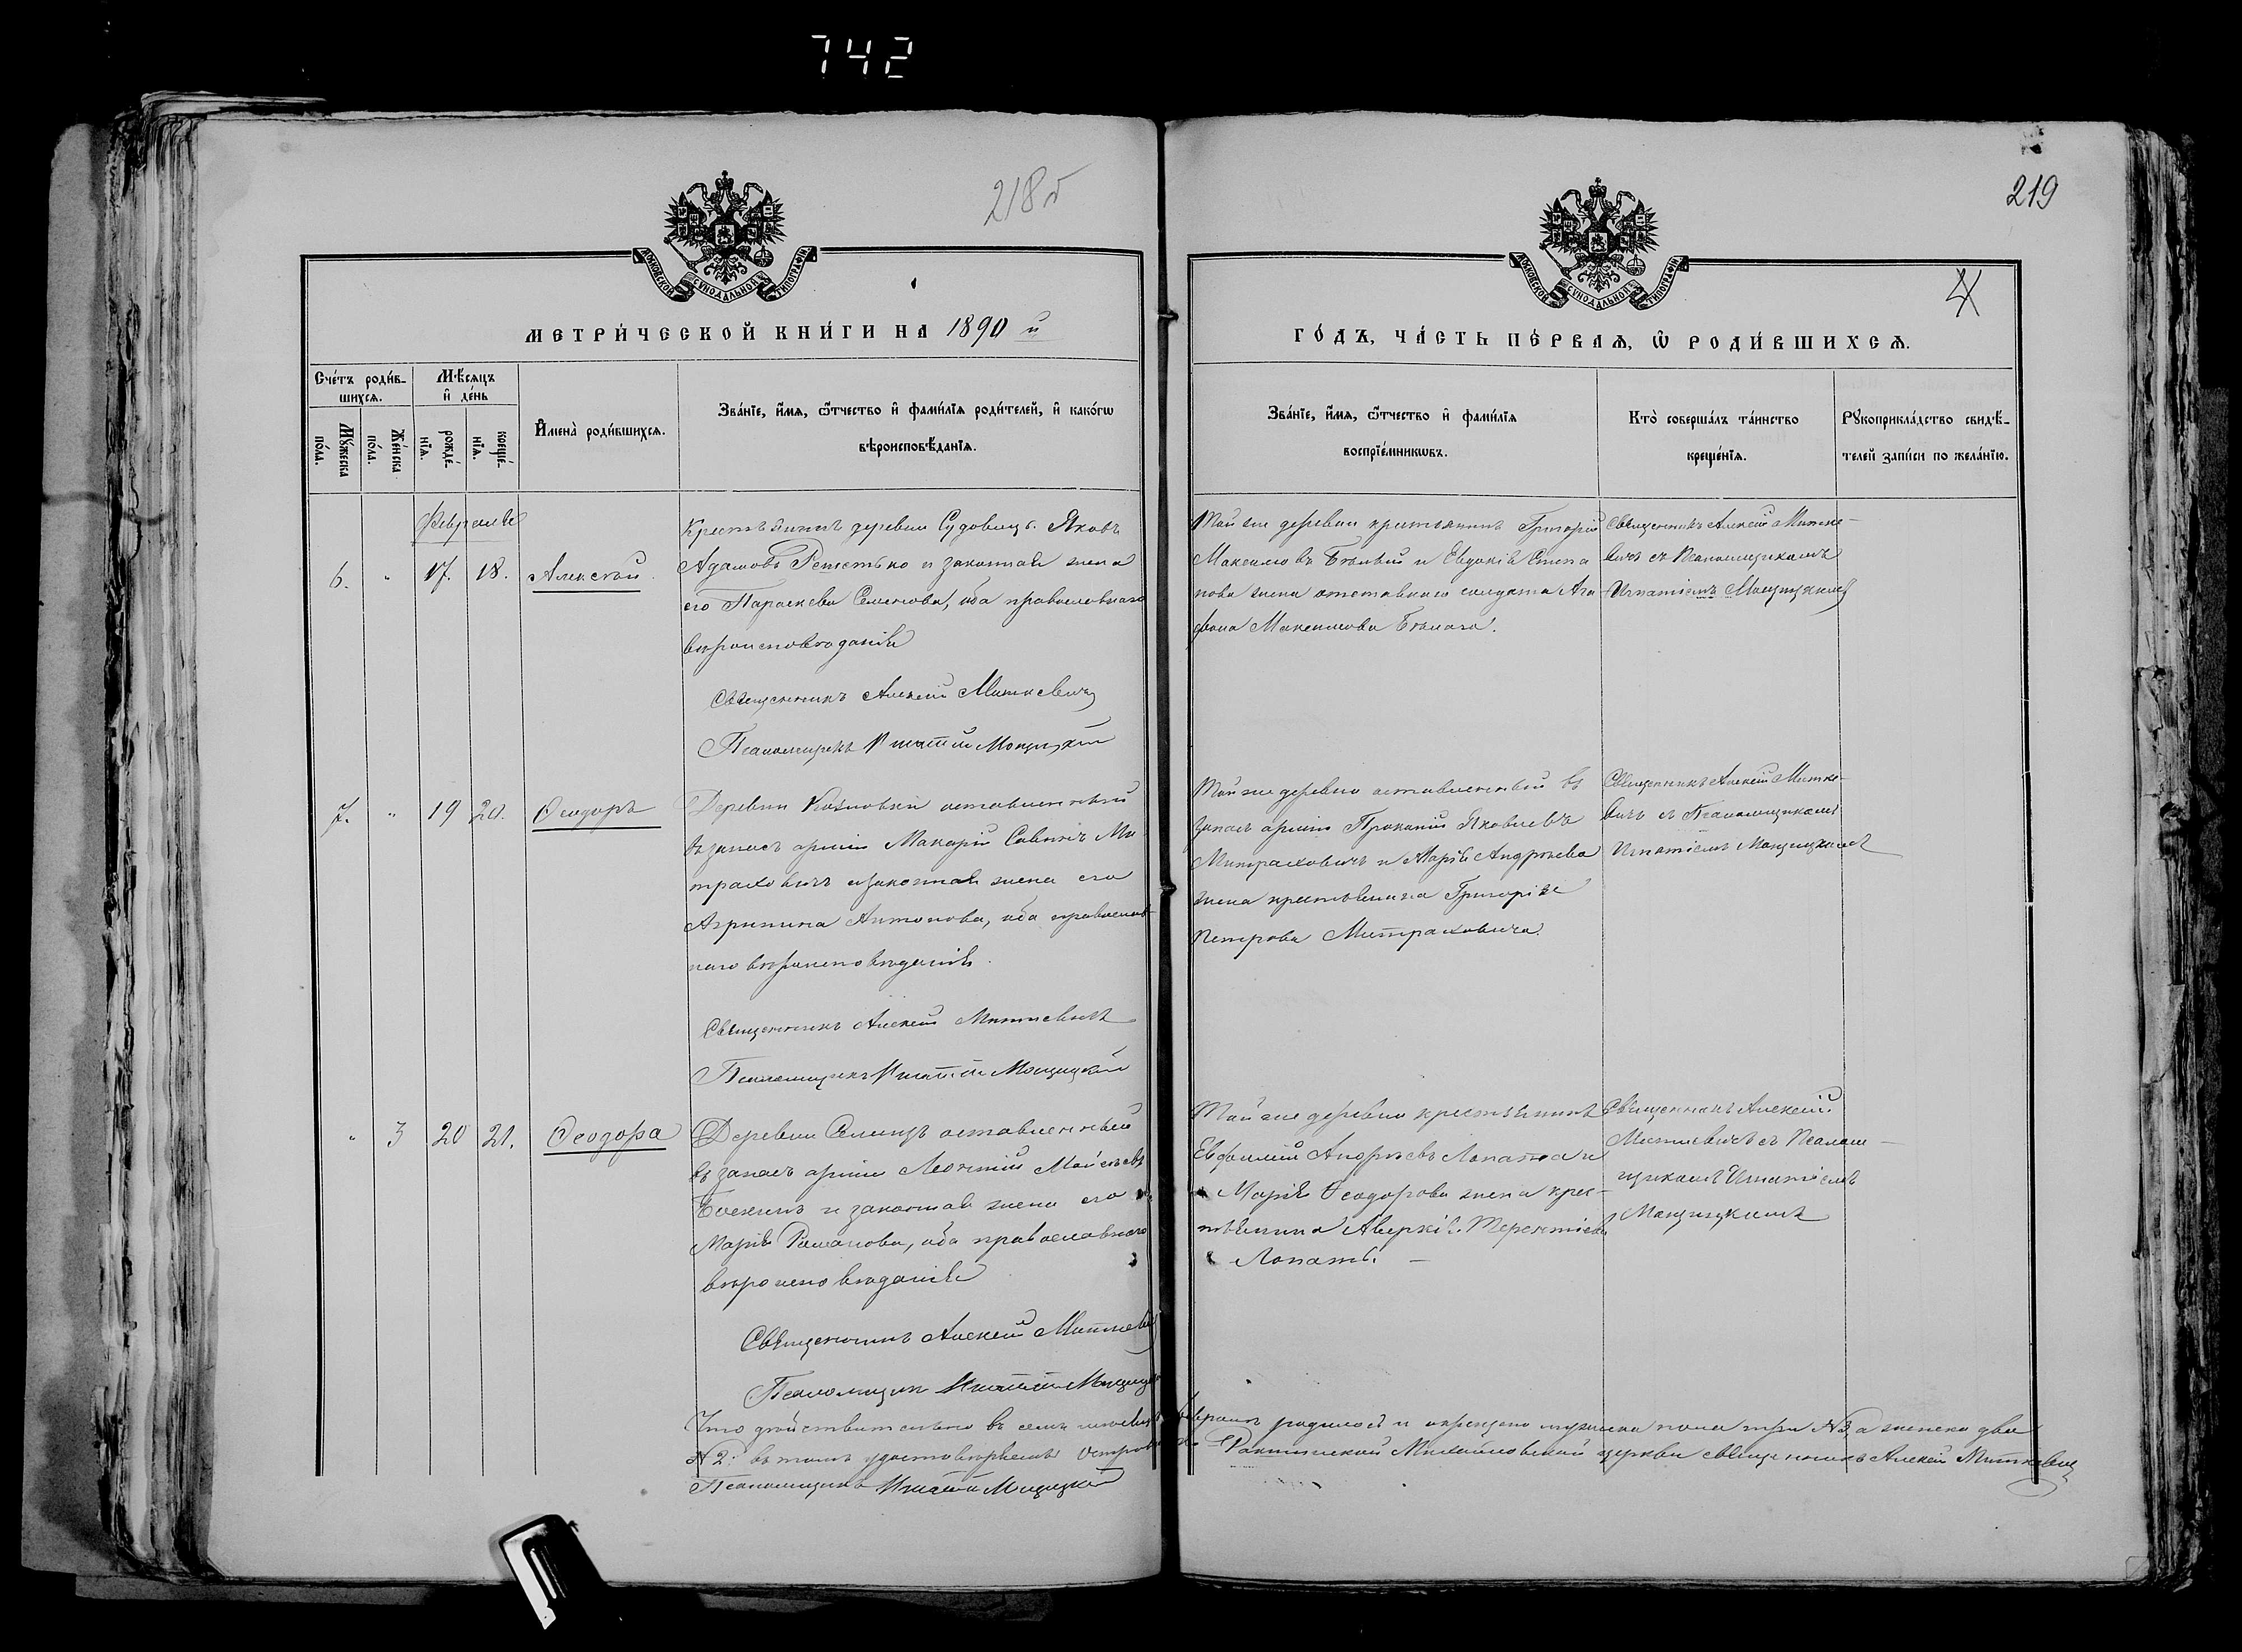 742
218 б
219
4
МОСКОВСКОЙ СѴНОДАЛЬНОЙ ТИПОГРАФІИ.
МОСКОВСКОЙ СѴНОДАЛЬНОЙ ТИПОГРАФІИ.
МЕТРИ́ЧЕСКОЙ КНИ́ГИ НА 1890 й
ГО́ДЪ, ЧА́СТЬ ПЕ́РВАѦ, Ѽ РОДИ́ВШИХСѦ.
Сче́тъ роди́в-
шихсѧ.
Мѣ́сѧцъ
и҆ де́нь
Мꙋ́жеска
по́ла.
Же́нска
по́ла.
рожде́-
нїѧ.
креще́-
нїѧ.
И҆мена̀ роди́вшихсѧ.
Зва́нїе, и҆́мѧ, ѻ҆́тчество и҆ фами́лїѧ роди́телей, и҆ како́гѡ
вѣроисповѣ́данїѧ.
Зва́нїе, и҆́мѧ, ѻ҆́тчество и҆ фами́лїѧ
воспрїе́мникѡвъ.
Кто̀ соверша́лъ та́инство
креще́нїѧ.
Рꙋкоприкла́дство свидѣ́-
телей за́писи по жела́нїю.
Февраля
6. " 17. 18. Алексѣй
Крестьянинъ деревни Судовицъ Яковъ
Адамовъ Решетько и законная жена
его Параскева Семенова, оба православнаго
вѣроисповѣданія
Священникъ Алексѣй Миткевичъ
Псаломщикъ Игнатій Мощицкій
Той же деревни крестьянинъ Григорій
Максимовъ Бѣлый и Евдокія Степа
нова жена отставнаго солдата Ага
фона Максимова Бѣлаго.
Священникъ Алексѣй Митке-
вичъ съ Псаломщикомъ
Игнатіемъ Мощицкимъ
7. " 19 20. Ѳеодоръ
Деревни оставленный
въ запасъ арміи Макарій Савинъ Ми
траховичъ и законная жена его
Агрипина Антонова, оба православ-
наго вѣроисповѣданія.
Священникъ Алексѣй Миткевичъ
Псаломщикъ Игнатій Мощицкій
Той же деревни оставленный въ
запасъ арміи Прокопій Яковлевъ
Митраховичъ и Марія Андреева
жена крестьянина Григорія
Петрова Митраховича.
Священникъ Алексѣй Митке-
вичъ съ Псаломщикомъ
Игнатіемъ Мощицкимъ
" 3 20 21. Ѳеодора
Деревни оставленный
въ запасъ арміи Леонтій Моисеевъ
и законная жена его
Марія Романова, оба православнаго
вѣроисповѣданія
Священникъ Алексѣй Миткевичъ
Псаломщикъ Игнатій Мощицкій
Той же деревни крестьянинъ
Евфимій Андреевъ Лопата и
Марія Ѳеодорова жена крес-
тьянина Аверкія Терентіева
Лопаты.
Священникъ Алексѣй
Миткевичъ съ Псалом-
щикомъ Игнатіемъ
Мощицкимъ
Что дѣйствительно въ семъ мѣсяцѣ февралѣ родилось и окрещено мужеска пола три №3, а женска два
№2: въ томъ удостовѣряемъ Михайловской церкви священникъ Алексѣй Миткевичъ
Псаломщикъ Игнатій Мощицкій